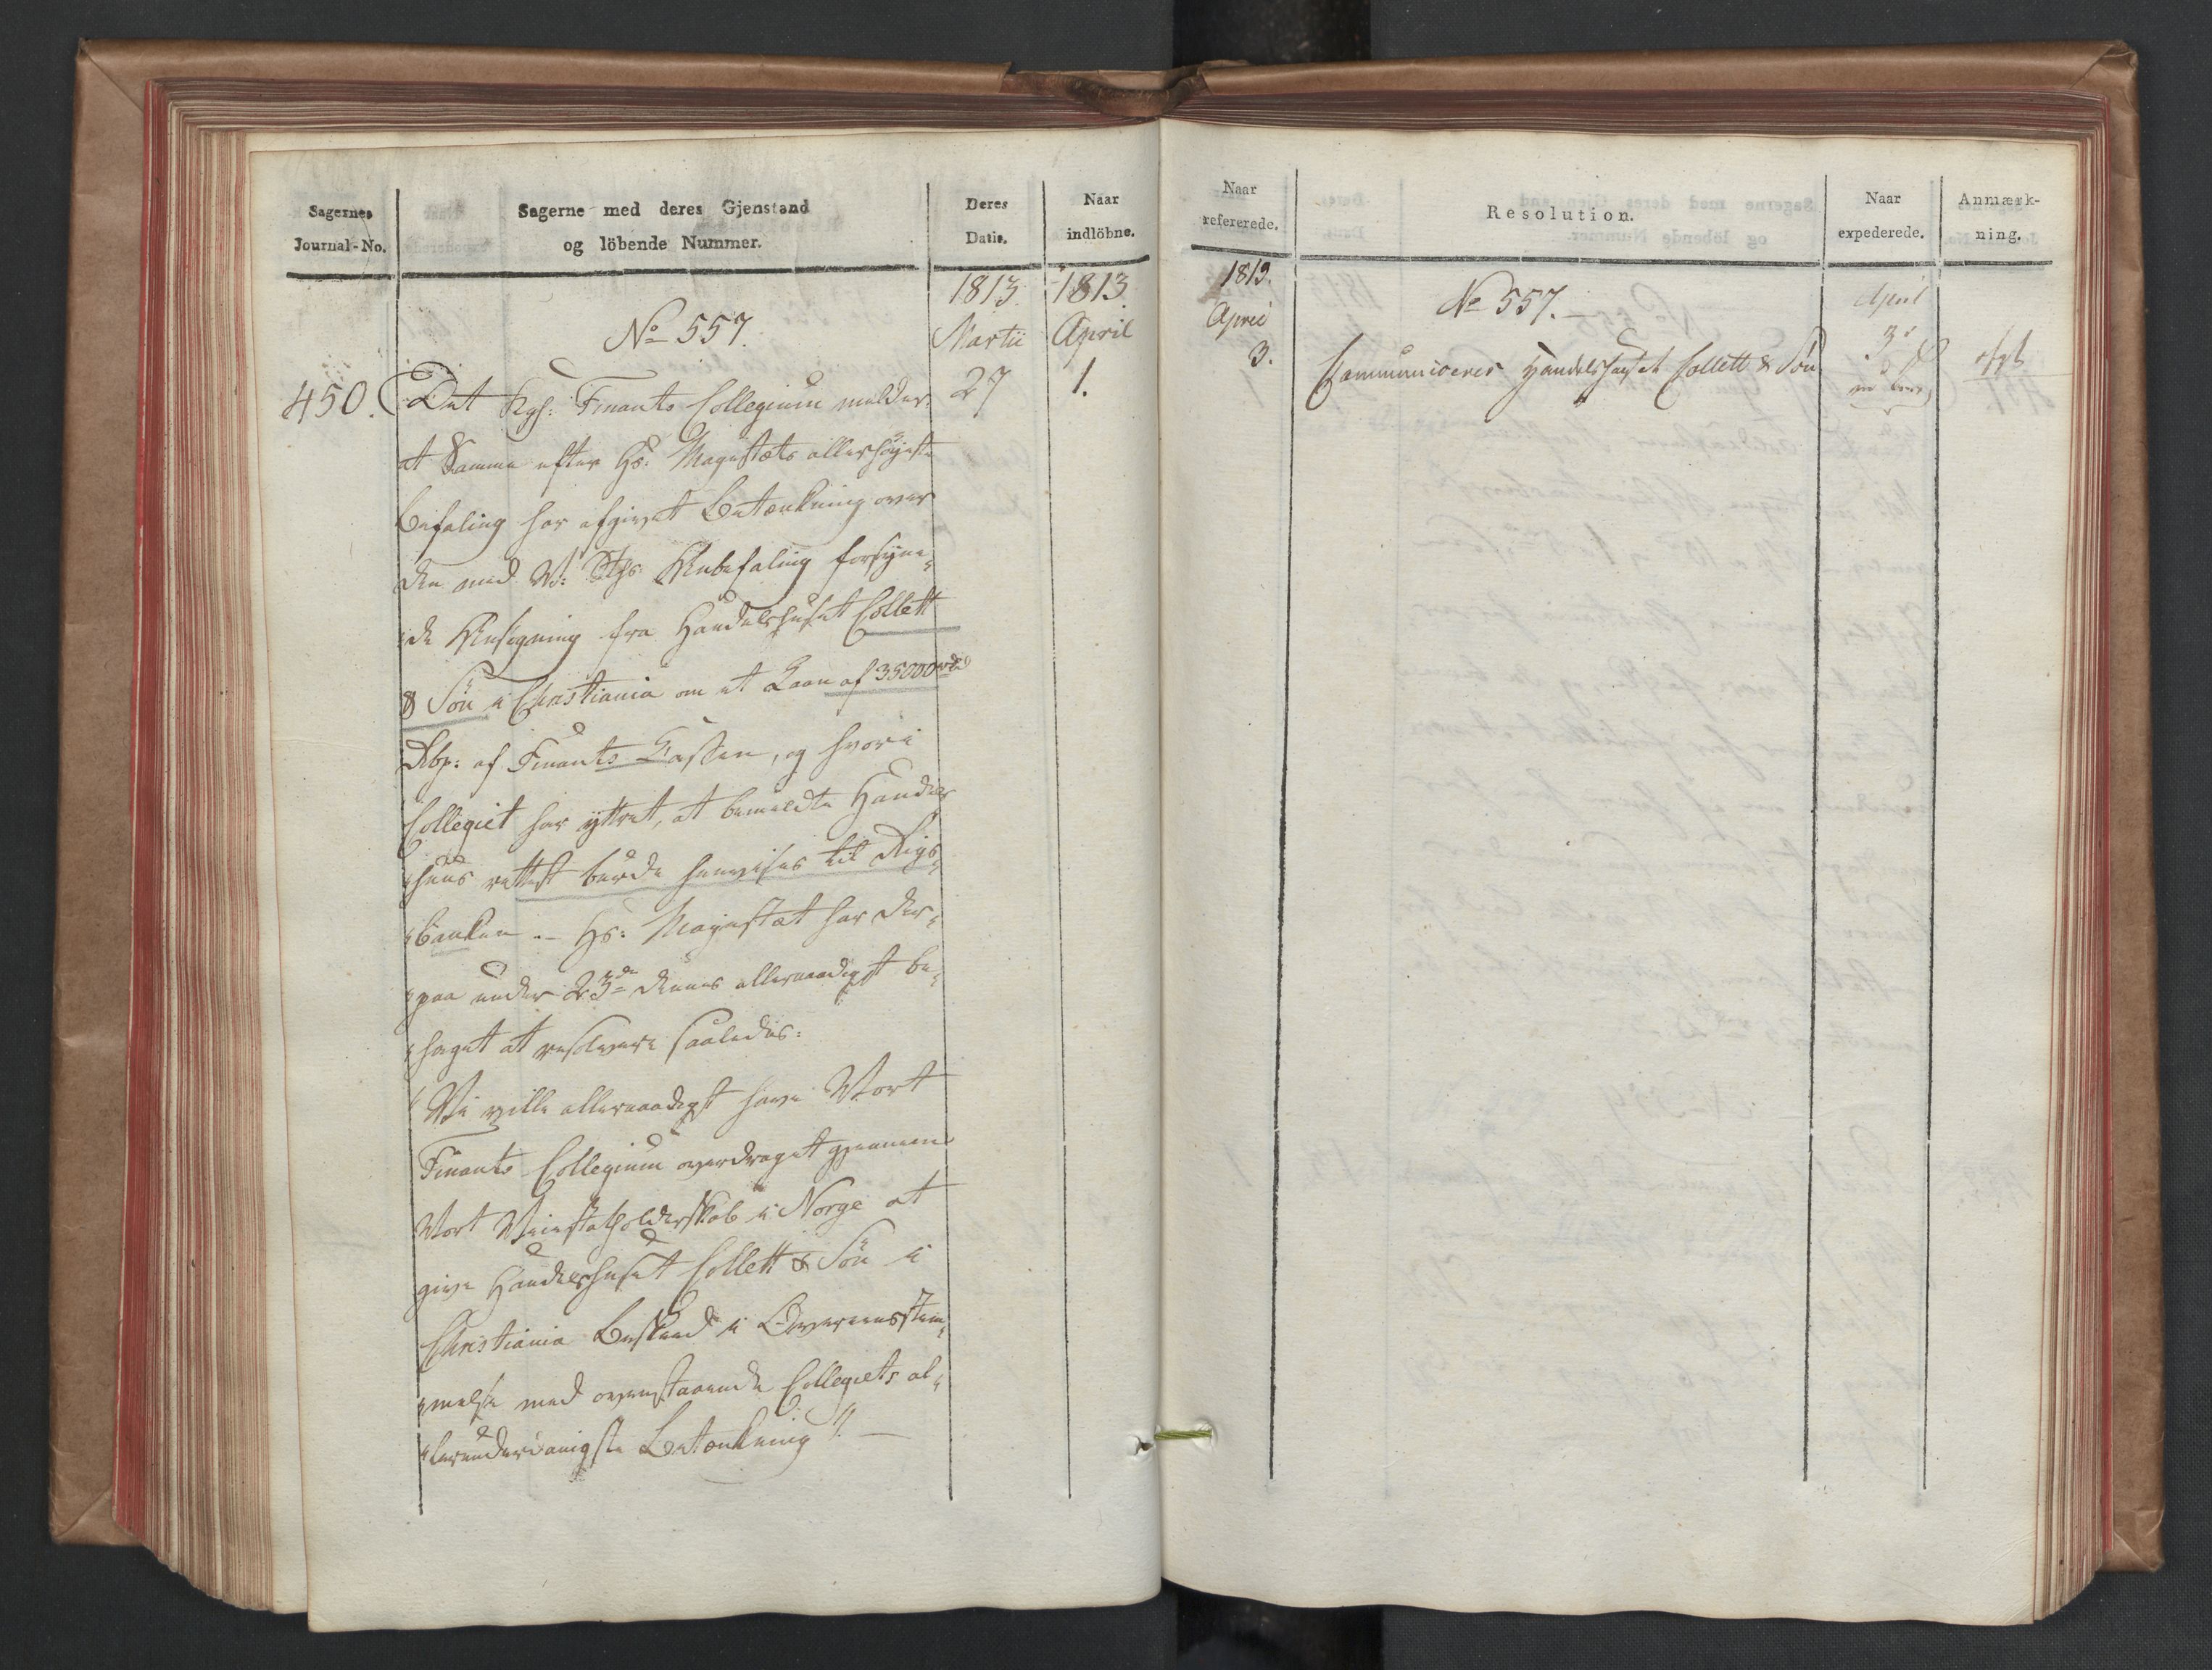 Sagernes
Journal-No.
Sagerne med deres Gjenstand
og löbende Nummer.
Deres
Datis.
Naar
indlöbne.
1813
1813
No 557.
Martii
April
450.
27
1.
Det Kgl: Finants Collegium melder,
at Samme efter Hs: Majestæts allerhøjeste
Befaling har afgivet Betænkning over
den med V: Anbefaling forsyne-
de Ansøgning fra Handelshuset Collett
& Sön i Christiania om et Laan af 35000 rd
Rbp: af Finants Cassen, og hvori
Collegiet har yttret, at bemeldte Handels
huus rettest burde henvises til Rigs-
banken. – Hs: Majestæt har der-
paa under 23de dennes allernaadigst be-
haget at resolvere saaledes:
"Vi ville allernaadigst have Vort
Finants Collegium overdraget gjennem
Vort Vicestatholderskab i Norge at
give Handelshuset Collett & Sön i
Christiania Beskeed i Overeensstem-
melse med ovenstaaende Collegiets al-
lerunderdanigste Betænkning". –
Naar
refererede.
Resolution.
Naar
expederede.
Anmærk-
ning.
1813.
April
3.
No 557. –
Communiceres Handelshuset Collett & Sön
April
3